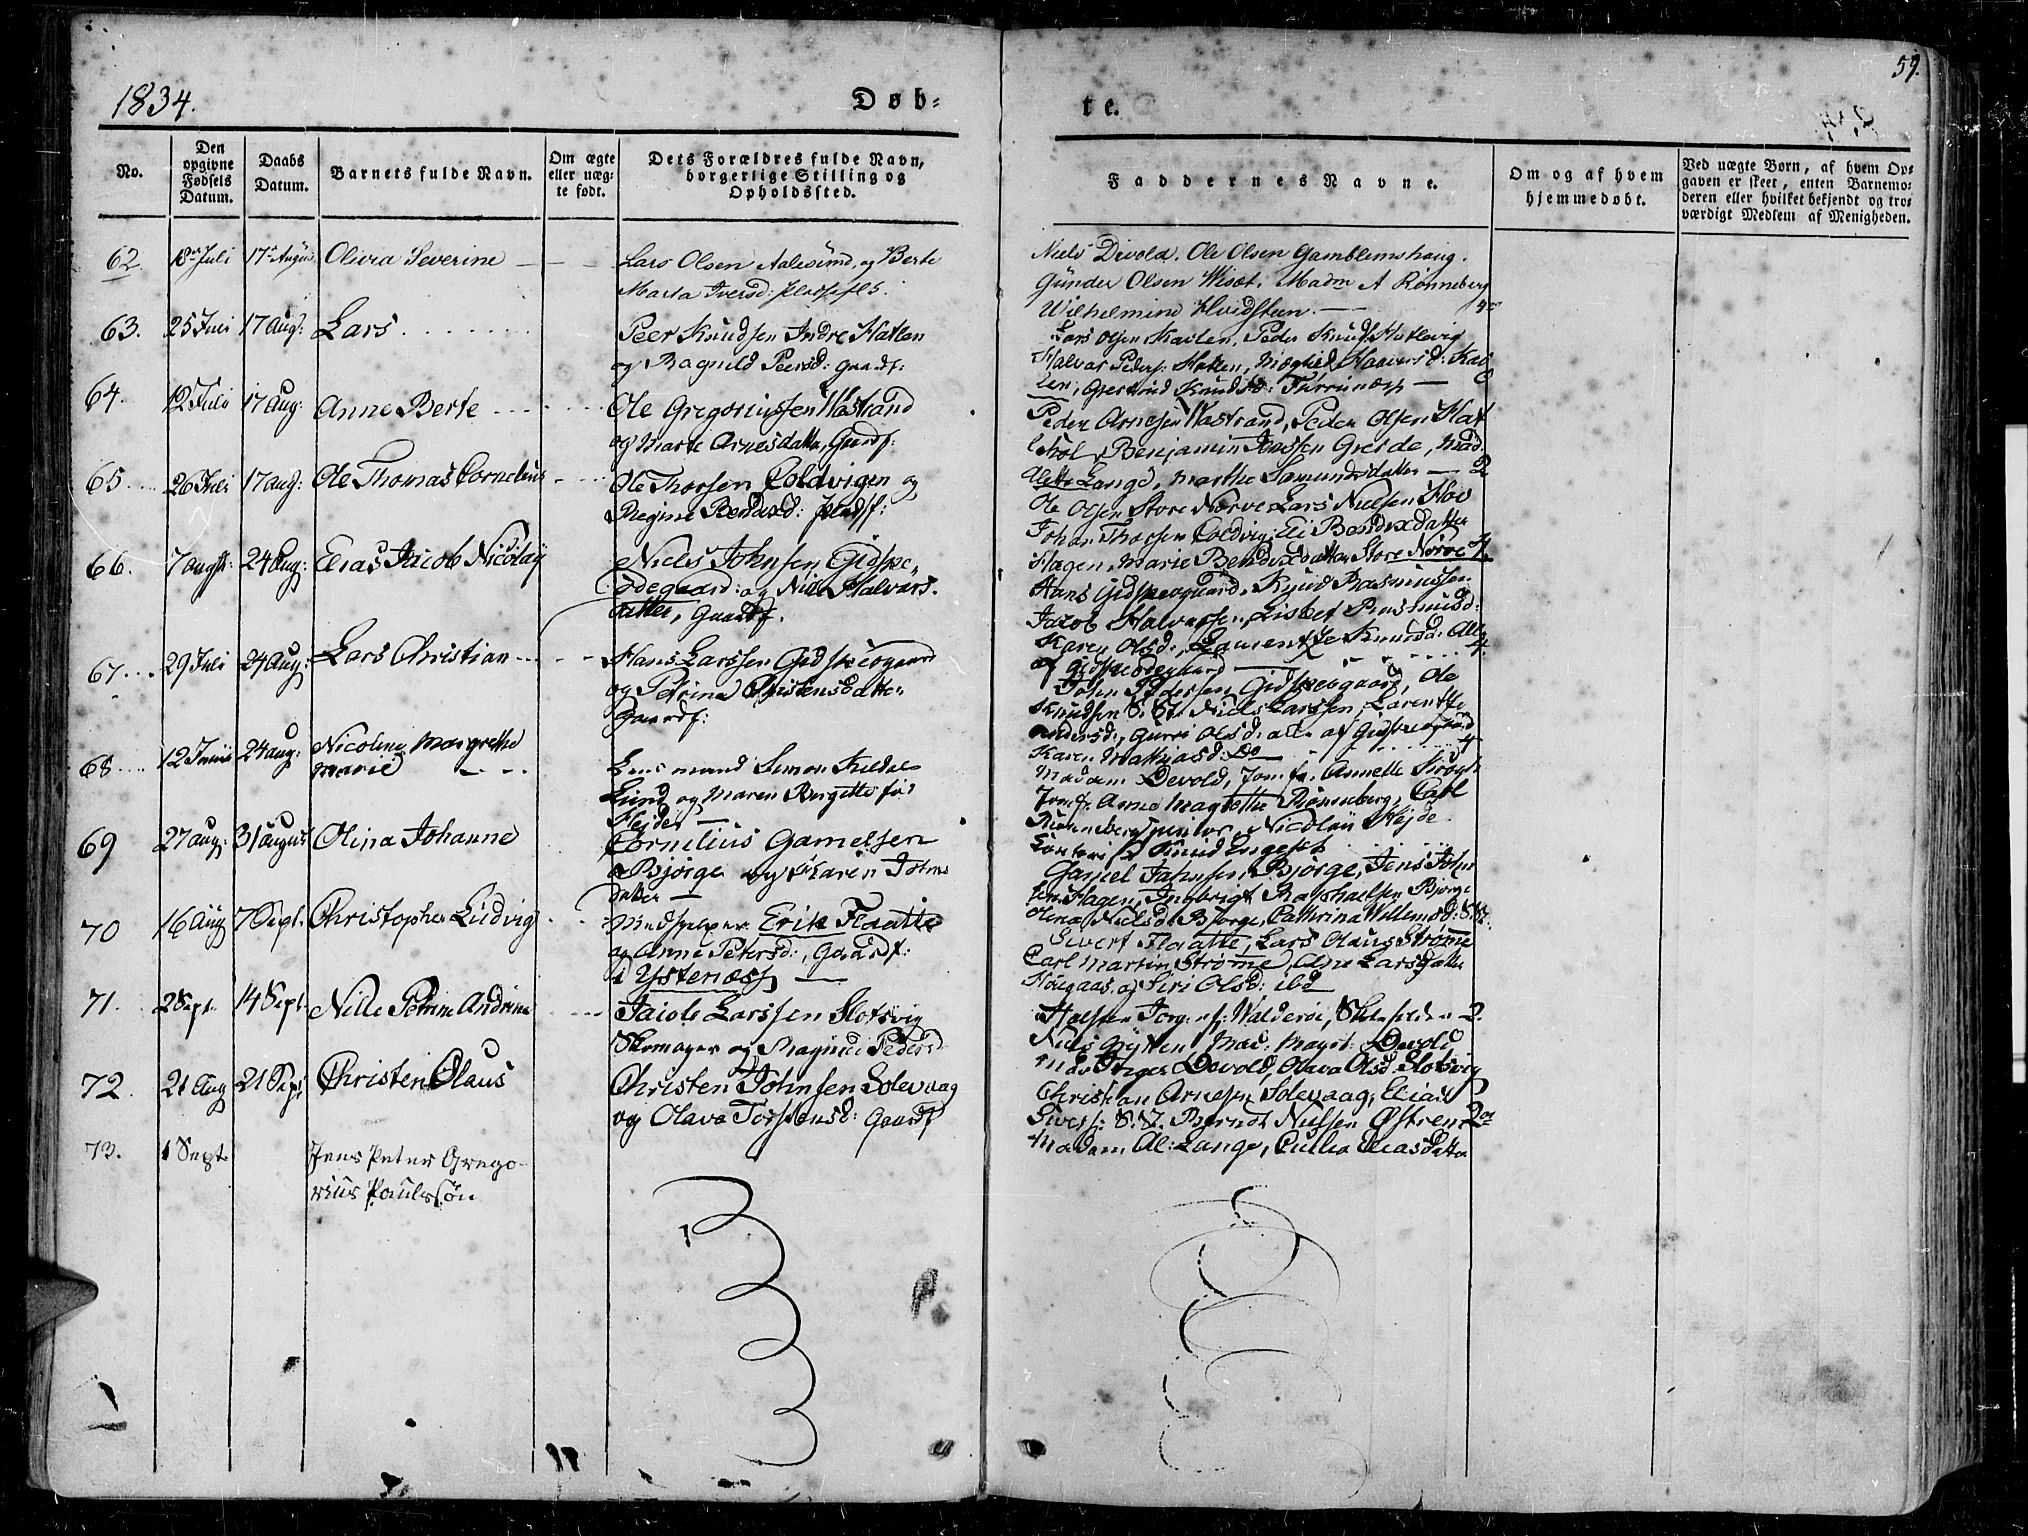 1834.
Døb=
te.
59.
No.
Den
opgivne
Fødsels
Datum.
Daabs
Datum.
Barnets fulde Navn.
Om ægte
eller uæg=
te født.
Dets Forældres fulde Navn,
borgerlige Stilling og
Opholdssted.
Faddernes Navne.
Om og af hvem
hjemmedøbt.
Ved uægte Børn, af hvem Op=
gaven er skeet, enten Barnemo=
deren eller hvilket bekjendt og tro=
værdigt Medlem af Menigheden.
62. 18 Juli 17 August Olivia Severine
Lars Olsen Aalesund, og Berte
Marta Iversd:
Niels Devold. Ole Olsen Gamblemshaug.
Gunder Olsen Wisæt. Madm A Rønneberg
Wilhelmine Hvidsteen.
63. 25 Juli 17 Aug: Lars
Peer Knudsen Indre Hatlen
og Ragnild Peersd: Gaardf:
Lars Olsen Hatlen, Peder Knuds Hatlevig
Halvar Peders: Hatlen,
len, Knudsd:
64. 12 Juli 17 Aug: Anne Berte
Ole Gregoriussen Wastrand
og Marte Arnesdatter, Gaardf:
Peder Arnesen Wastrand, Peder Olsen Hat
Benjamin Jenssen Greide, Mad.
Lange, Marthe Samundsdatter 2
65. 26 Juli 17 aug: Ole Thomas Cornelius
Ole Thorsen Coldvigen og
Regine Bendixd:
Ole Olsen Store Nørve Lars Nielsen Hov
Johan Thorsen Coldvig, Eli Bendixdatter
Hagen, Marie Bendixdatter Store Nørve 4
66. 7 24 Aug: Elias Jacob Nicolay
Niels Johnsen Gidske
ødegaard: og Nille Halvars.
datter, Gaardf.
Hans Gidskeøgaard, Knud Rasmussen
Jacob Halvorsen, Lisbet Rasmusd:
Karen Olsd:, Laurentze Knudsd: Alle
af Gidskeødegaard
4.
67. 29 Juli 24 Aug: Lars Christian
Hans Larssen Gidskeøgaard
og Petrine Christensdatter
Gaardf:
John Pedersen Gidskeøgaard, Ole
Knudsen S. St. Niels Larssen, Larentse
Andersd:, Gurri Olsd: alle af Gidskeøgaard
Karen Mathiasd: Do 4
68. 12 Junii 24 aug: Nicoline Margrethe
Marie
Simon Kildal
Lund og Maren Birgitte født
Hejde
Madam Devold, Jomfr. Annette Krogh
Jomfr. Anne Magrethe Rønneberg, Carl
Rønneberg junior, Nicolay Hejde
Knud Engeset
69 27 aug: 31 August Olina Johanne
Cornelius Gamelsen
Bjørge og Karen Johns
datter
Gamel Johnsen Bjørge, Jens John
sen Hagen, Ingebrigt Raphaelsen Bjørge
Olina Nielsd: Bjørge, Cathrina Willemsd: S. St.
70 16 Aug 7 Sept. Christopher Ludvig
Medhjelper Erik Flaatte
og Anne Petersd:, Gaardf:
i Ystenæss
Sivert Flaatte, Lars Olaus Strømme
Carl Martin Strømme, Ane Larsdatter
Hougaas og Siri Olsd: ibd
71. 2 Sept. 14 Sept. Nille Andrine
Jacob Larssen Slotsvig
Skomager og Magnild Pedersd
Walderøe, 2.
Niels Mad: Magrt: Devold
Devold, Olava Olsd Slotsvig
72. 21 Aug 21 Sept Christen Olaus
Christen Johnsen Solevaag
og Olava Torstensd: Gaardf
Christian Arnesen Solevaag, Elias
Sivers: S. St. Berndt Nielsen Østrem
Madam Al: Lange, Eliasdatter
73. 1 Sept. Jens Peter Grego=
rius Paulssøn